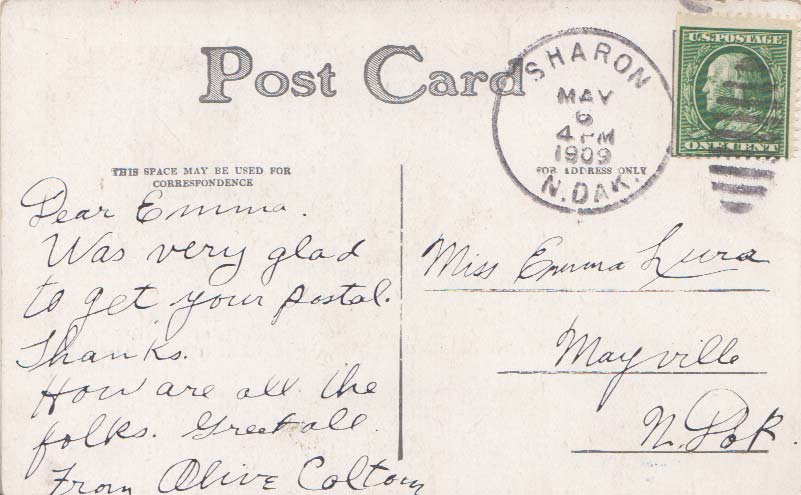 Post Card
U.S. POSTAGE
ONE CENT
SHARON
MAY
6
4 PM
1909
N. DAK.
THIS SPACE MAY BE USED FOR
CORRESPONDENCE
FOR ADDRESS ONLY
Dear Emma.
Was very glad
to get your postal.
Thanks.
How are all the
folks. Greet all.
From Olive Coltom
Miss Emma Lura
Mayville
N. Dak.